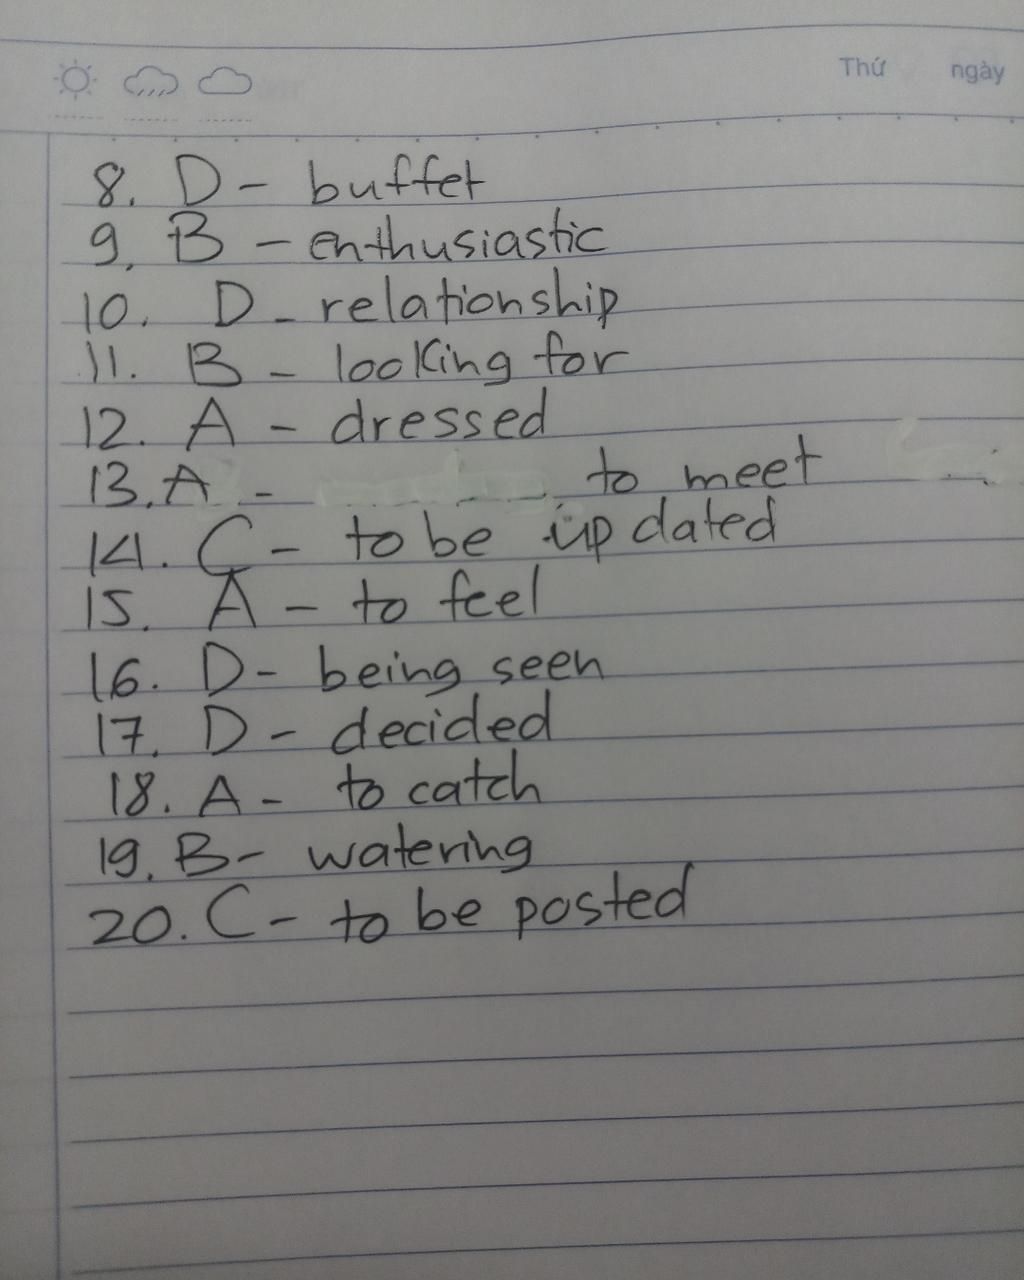 Thứ ngày
8. D - buffet
9. B - enthusiastic
10. D - relationship
11. B - looking for
12. A - dressed
13. A - to meet
14. C - to be updated
15. A - to feel
16. D - being seen
17. D - decided
18. A - to catch
19. B - watering
20. C - to be posted